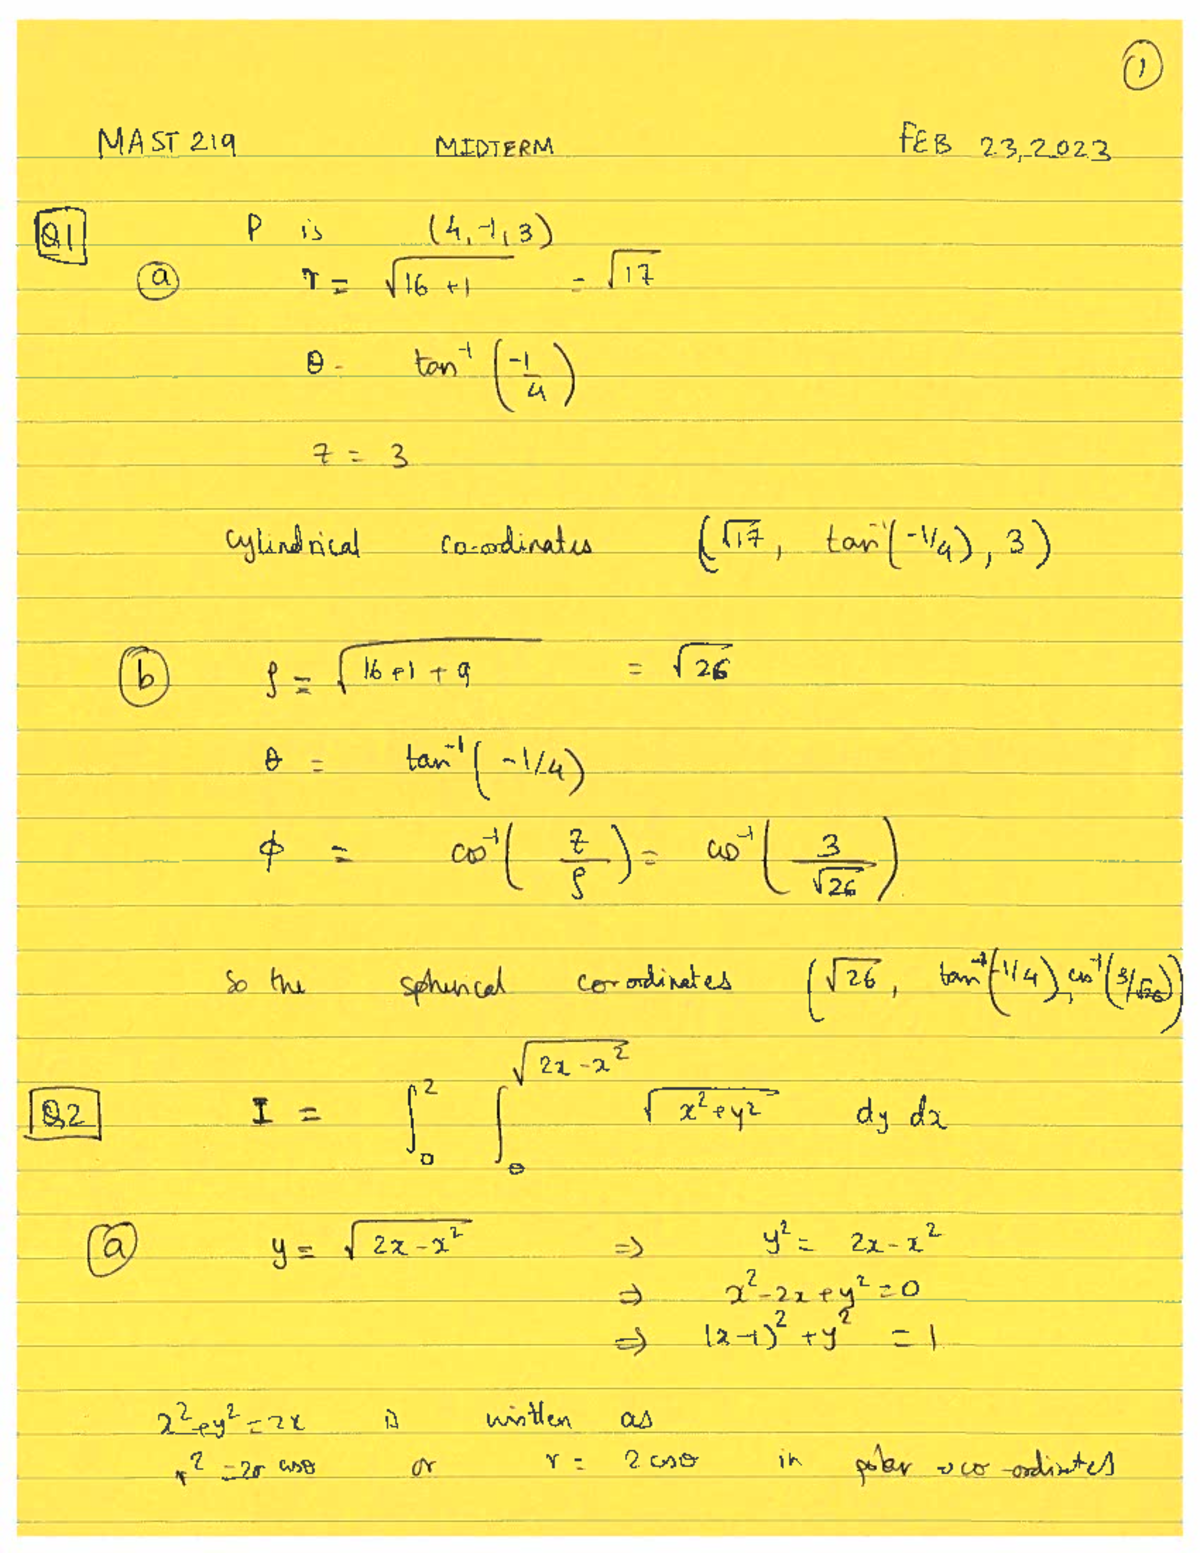 1
MAST 219 MIDTERM FEB 23, 2023
Q1 P is (4, -1, 3)
a r = √(16+1) = √17
θ - tan⁻¹(-1/4)
z = 3
Cylindrical co-ordinates (√17, tan⁻¹(-1/4), 3)
b ρ = √(16+1+9) = √26
θ = tan⁻¹(-1/4)
φ = cos⁻¹(z/ρ) = cos⁻¹(3/√26)
So the spherical co-ordinates (√26, tan⁻¹(-1/4), cos⁻¹(3/√26))
Q2 I = ∫₀² ∫₀^√(2x-x²) √(x²+y²) dy dx
a y = √(2x-x²) ⇒ y² = 2x-x²
⇒ x²-2x+y²=0
⇒ (x-1)²+y² = 1
x²+y²=2x is written as
r² = 2r cosθ or r = 2 cosθ in polar co-ordinates